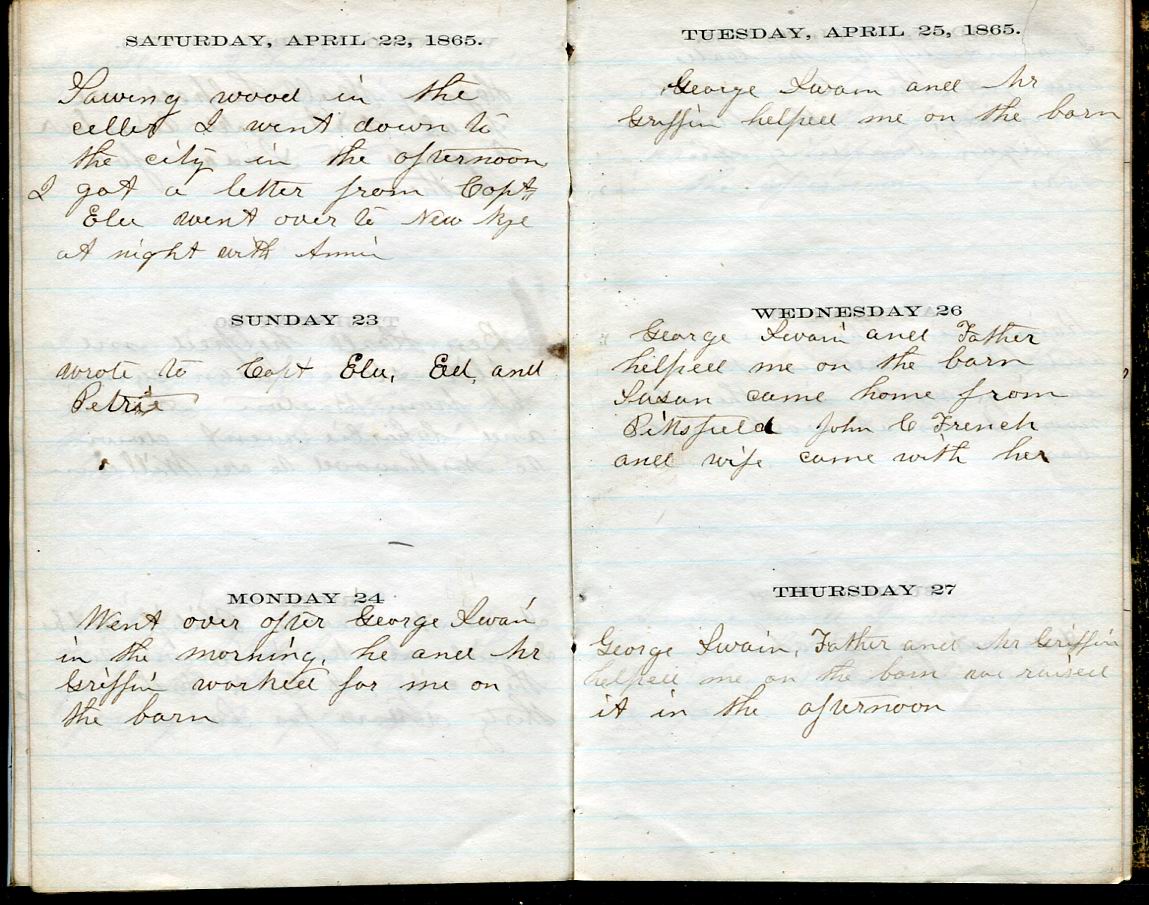 SATURDAY, APRIL 22, 1865.
Sawing wood in the
celler I went down to
the city in the afternoon
I got a letter from Capt
Elu went over to New Rye
at night with Annie
SUNDAY 23
wrote to Capt Elu, Ed, and
Petrie
MONDAY 24
Went over after George Swain
in the morning, he and Mr
Griffin worked for me on
the barn
TUESDAY, APRIL 25, 1865.
George Swain and Mr
Griffin helped me on the barn
WEDNESDAY 26
George Swain and Father
helped me on the barn
Susan came home from
Pittsfield John C French
and wife came with her
THURSDAY 27
George Swain, Father and Mr Griffin
helped me on the barn we raised
it in the afternoon